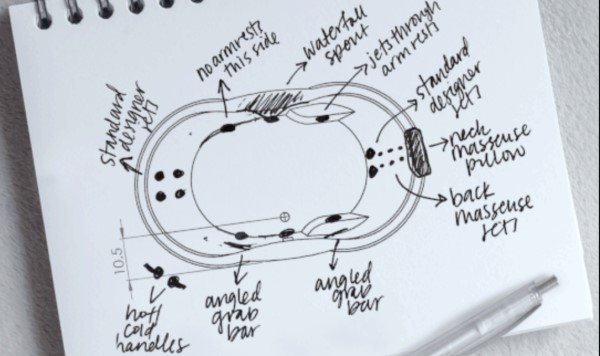 no armrests
this side
waterfall
spout
jets through
arm rests
standard
designer
jets
standard
designer
jets
neck
masseuse
pillow
back
masseuse
jets
10.5
hot/
cold
handles
angled
grab
bar
angled
grab
bar